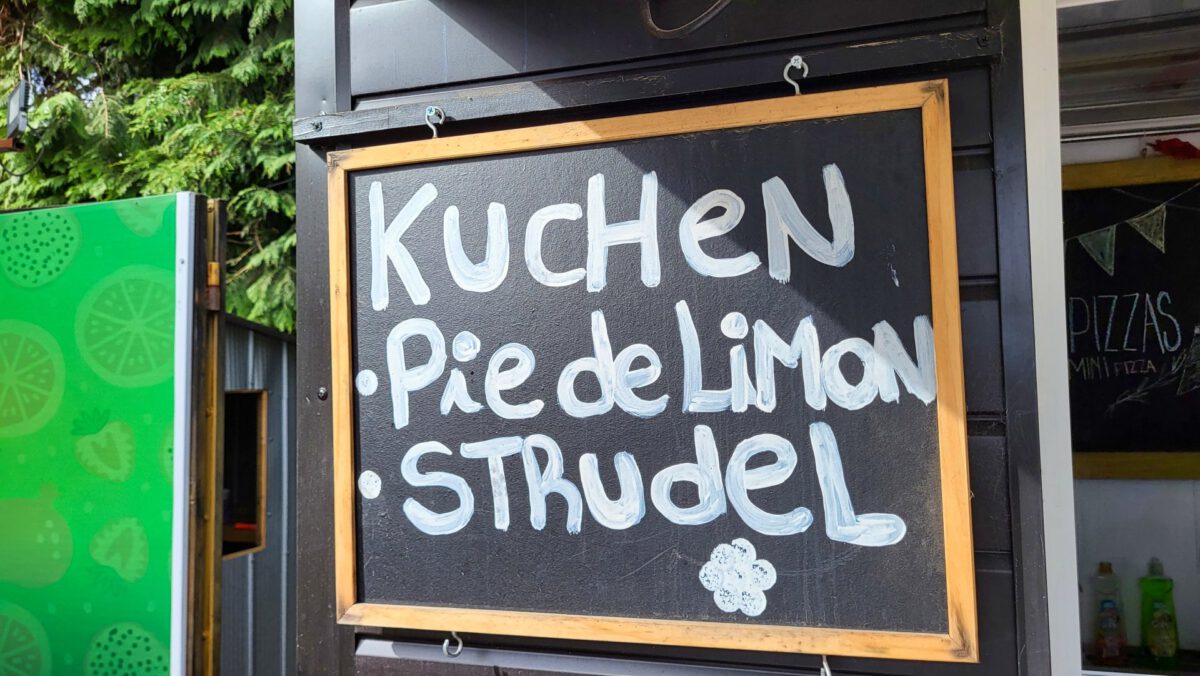 KUCHEN
• Pie de LiMON
• STRUdeL
PIZZAS
MINI PIZZA